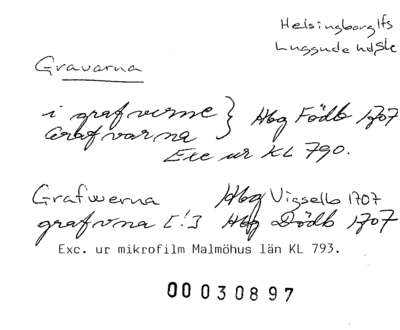 Helsingborg lfs
Luggude hd, Sk
Gravarna
i grafverne } Hbg Födb 1707
Grafvarna
Exc ur KL 790.
Grafwerna Hbg Vigselb 1707
grafvna [!] Hbg Dödb 1707
Exc. ur mikrofilm Malmöhus län KL 793.
00030897